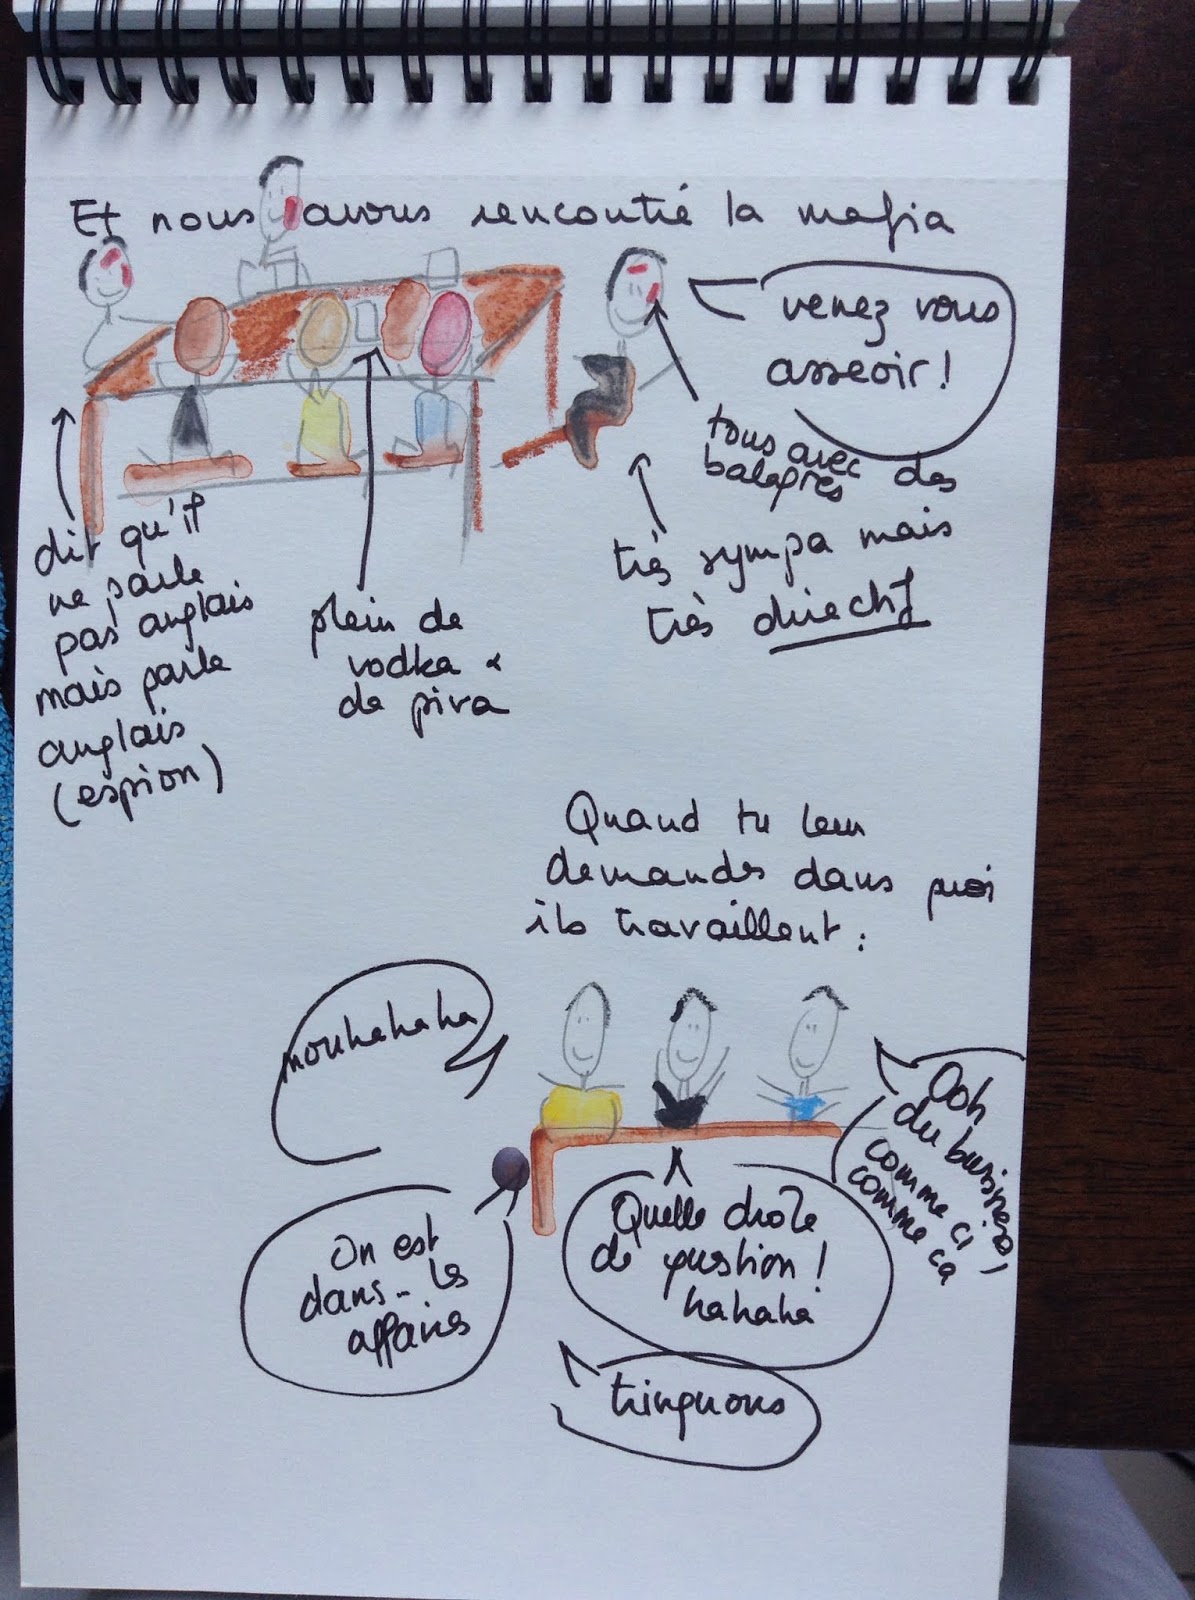 Et nous avons rencontré la mafia
venez vous
asseoir!
tous avec des
balafres
très sympa mais
très direct
dit qu'il
ne parle
pas anglais
mais parle
anglais
(espion)
plein de
vodka &
de piva
Quand tu leur
demandes dans quoi
ils travaillent:
mouhahaha
Ooh
du business,
comme ci
comme ca
On est
dans.. les
affaires
Quelle drole
de question!
hahaha
trinquons